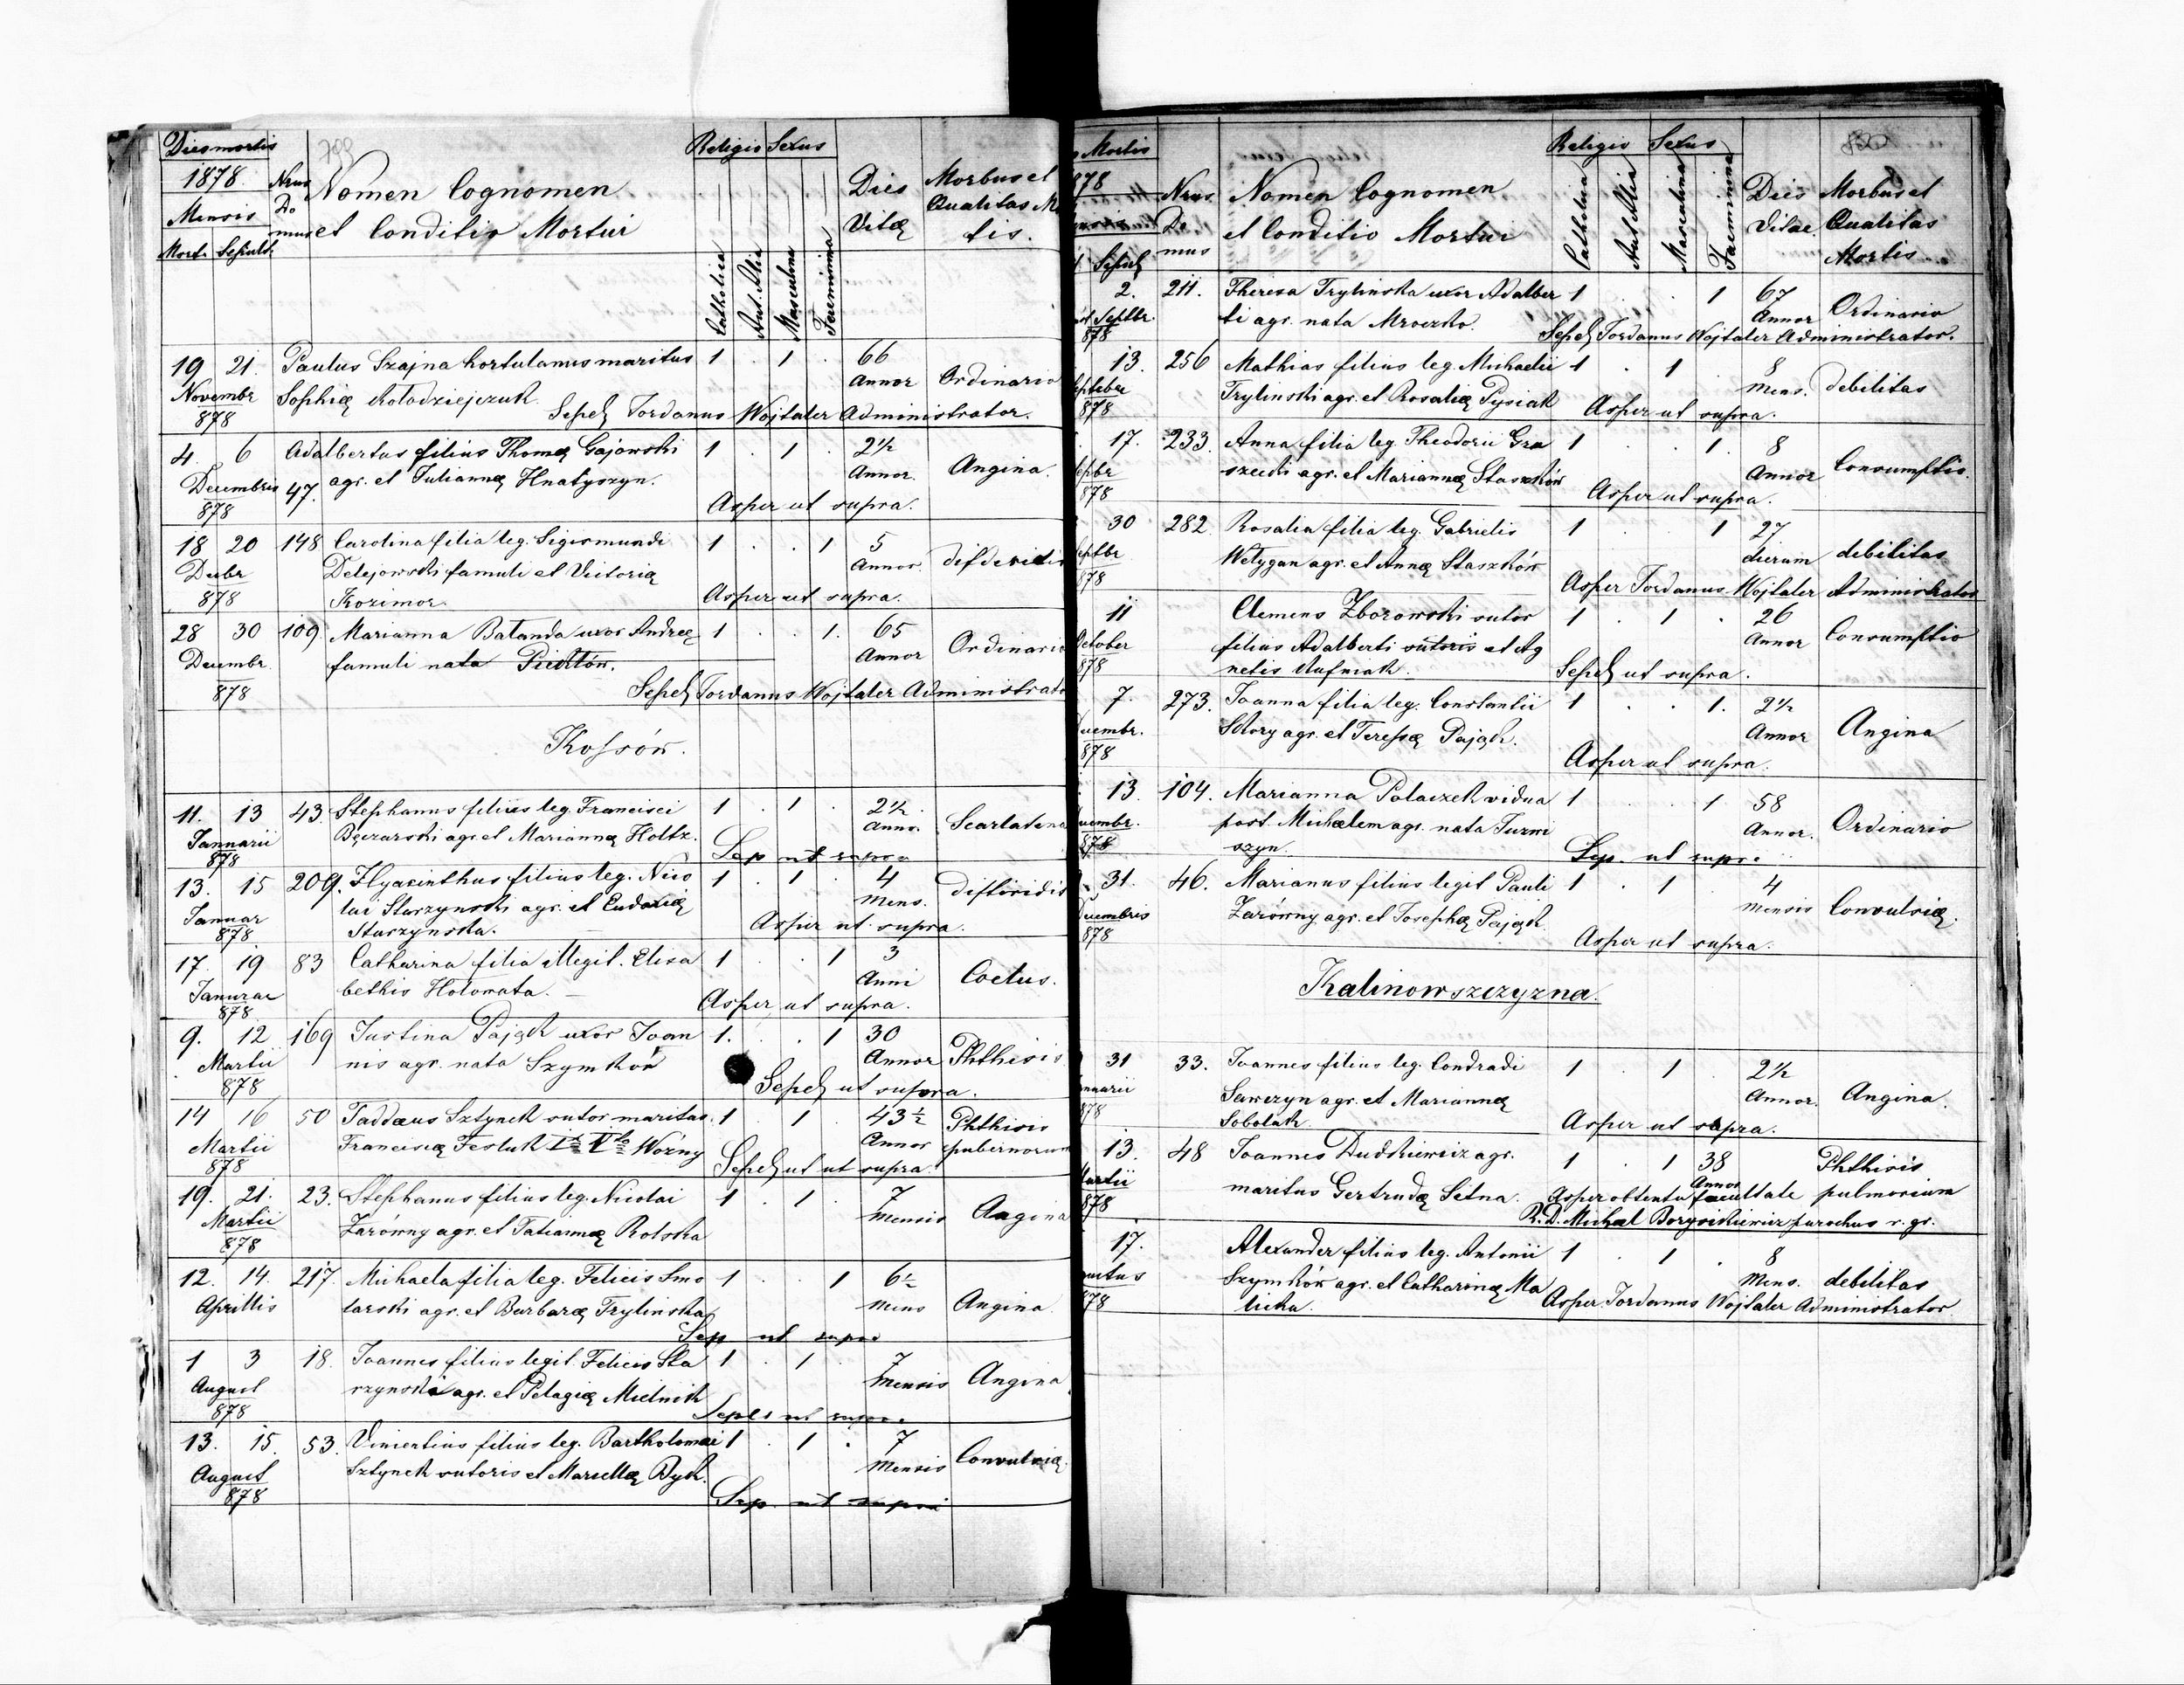 Dies mortis
1878.
Mensis
Mort. Sepult.
Nrus
Do
mus
Nomen Cognomen
et Conditio Mortui
Religio Sexus
Catholica
Aut. Alia
Masculina
Foeminina
Dies
Vitæ
Morbus et
Qualitas M
tis.
19 21. Paulus Szajna hortulanus maritus 1 . 1 . 66
Novembr Sophiæ Kołodziejczuk. Annor Ordinario
878 Sepel Jordanus Wojtaler Administrator.
4. 6 Adalbertus filius Thomæ Gajowski 1 . 1 . 2½
Decembris 47. agr. et Julianna Hnatyszyn. Annor. Angina.
878 Asper ut supra.
18 20 148 Carolina filia leg. Sigismundi 1 . . 1 5
Decbr Delejowski famuli et Victoriæ Annor.
878 Kozimor. Asper ut supra.
28 30 109 Marianna Bałanda uxor Andreæ 1 . . 1. 65
Decembr. famuli nata Annor Ordinario
878 Sepel Jordanus Wojtaler Administrato
Kossów.
11. 13 43. Stephanus filius leg. Francisci 1 . 1 . 2½
Januarii Bęczarski agr. et Mariannæ Holtz. Annor. Scarlatina
878 Sep ut supra
13. 15 209. Hyacinthus filius leg. Nico 1 . 1 . 4
Januar lai Starzynski agr. et Eudoxiæ Mens.
878 Starzynska. Asper ut supra.
17. 19 83 Catharina filia illegit. Elisa 1 . . 1 3
Januar bethis Hołowata. Anni Coctus.
878 Asper ut supra.
9. 12 169 Justina Pająk uxor Joan 1. . . 1 30
Martii nis agr. nata Szymków Annor Phthisis
878 Sepel ut supra.
14 16 50 Taddæus Sztynek sutor maritus 1 . 1 . 43½ Phthisis
Martii Franciscæ Festuk Woźny Annor
878 Sepel ut ut supra.
19. 21. 23. Stephanus filius leg. Nicolai 1 . 1 . 7
Martii Zarówny agr. et Tatiannæ Rolska Mensis Angina
878
12. 14. 217. Michaela filia leg. Felicis Smo 1 . . 1 6½
Aprillis larski agr. et Barbaræ Trylinska Mens Angina.
Sep ut supra
1 3 18. Joannes filius legit. Felicis Sta 1 . 1 . 7
August rzynski agr. et Pelagiæ Mielnik Mensis Angina
878 Sepel ut supra
13. 15. 53. Vincentius filius leg. Bartholomæi 1 . 1 . 7
August Sztynek sutoris et Marcellæ Byk. Mensis Convulsiæ.
878 Sep. ut supra
Mortis
878
Sepel
Nrus
Do
mus
Nomen Cognomen
et Conditio Mortui
Religio Sexus
Catholica
Aut Alia
Masculina
Faeminina
Dies
Vitae
Morbus et
Qualitas
Mortis
2. 211. Theresa Trylinska uxor Adalber 1 . . 1 67
Septbr. ti agr. nata Mroczko. Annor Ordinario
878 Sepel Jordanus Wojtaler Administrator.
13. 256 Mathias filius leg. Michaelis 1 . 1 . 8
Trylinski agr. et Rosaliæ Pysiak Mens. debilitas
878 Asper ut supra.
17. 233. Anna filia leg. Theodorii Gra 1 . . 1. 8
szecki agr. et Mariannæ Staszków Annor Consumptio.
878 Asper ut supra.
30 282. Rosalia filia leg. Gabrielis 1 . . 1 27
Wełygan agr. et Annæ Staszków dierum debilitas
878 Asper Jordanus Wojtaler Administrator
11 Clemens Zborowski sutor 1 . 1 . 26
October filius Adalberti sutoris et Ag Annor Consumptio
878 netis Sepel ut supra.
7. 273. Joanna filia leg. Constantii 1 . . 1. 2½
Skory agr. et Teressæ Pająk. Annor Angina
878 Asper ut supra.
13. 104. Marianna Polaczek vidua 1 . . 1 58
post Michælem agr. nata Juzwi Annor. Ordinario
878 szyn. Sep. ut supra
31. 46. Marianus filius legit Pauli 1 . 1 4
Zarówny agr. et Josephæ Pająk. Mensis Convulsiæ.
878 Asper ut supra.
Kalinowszczyzna.
31 33. Joannes filius leg. Condradi 1 . 1 . 2½
Sawczyn agr. et Mariannæ Annor. Angina.
878 Sobolak Asper ut supra.
13. 48 Joannes Dudkiewicz agr. 1 . 1 38 Phthisis
maritus Gertrudæ Sitna. Annor Asper obtenta facultate pulmorium
878 R. D. Michael Borysikiewicz parochus r. gr.
17. Alexander filius leg. Antonii 1 . 1 . 8
Szymków agr. et Catharinæ Ma Mens. debilitas
878 licka. Asper Jordanus Wojtaler Administrator